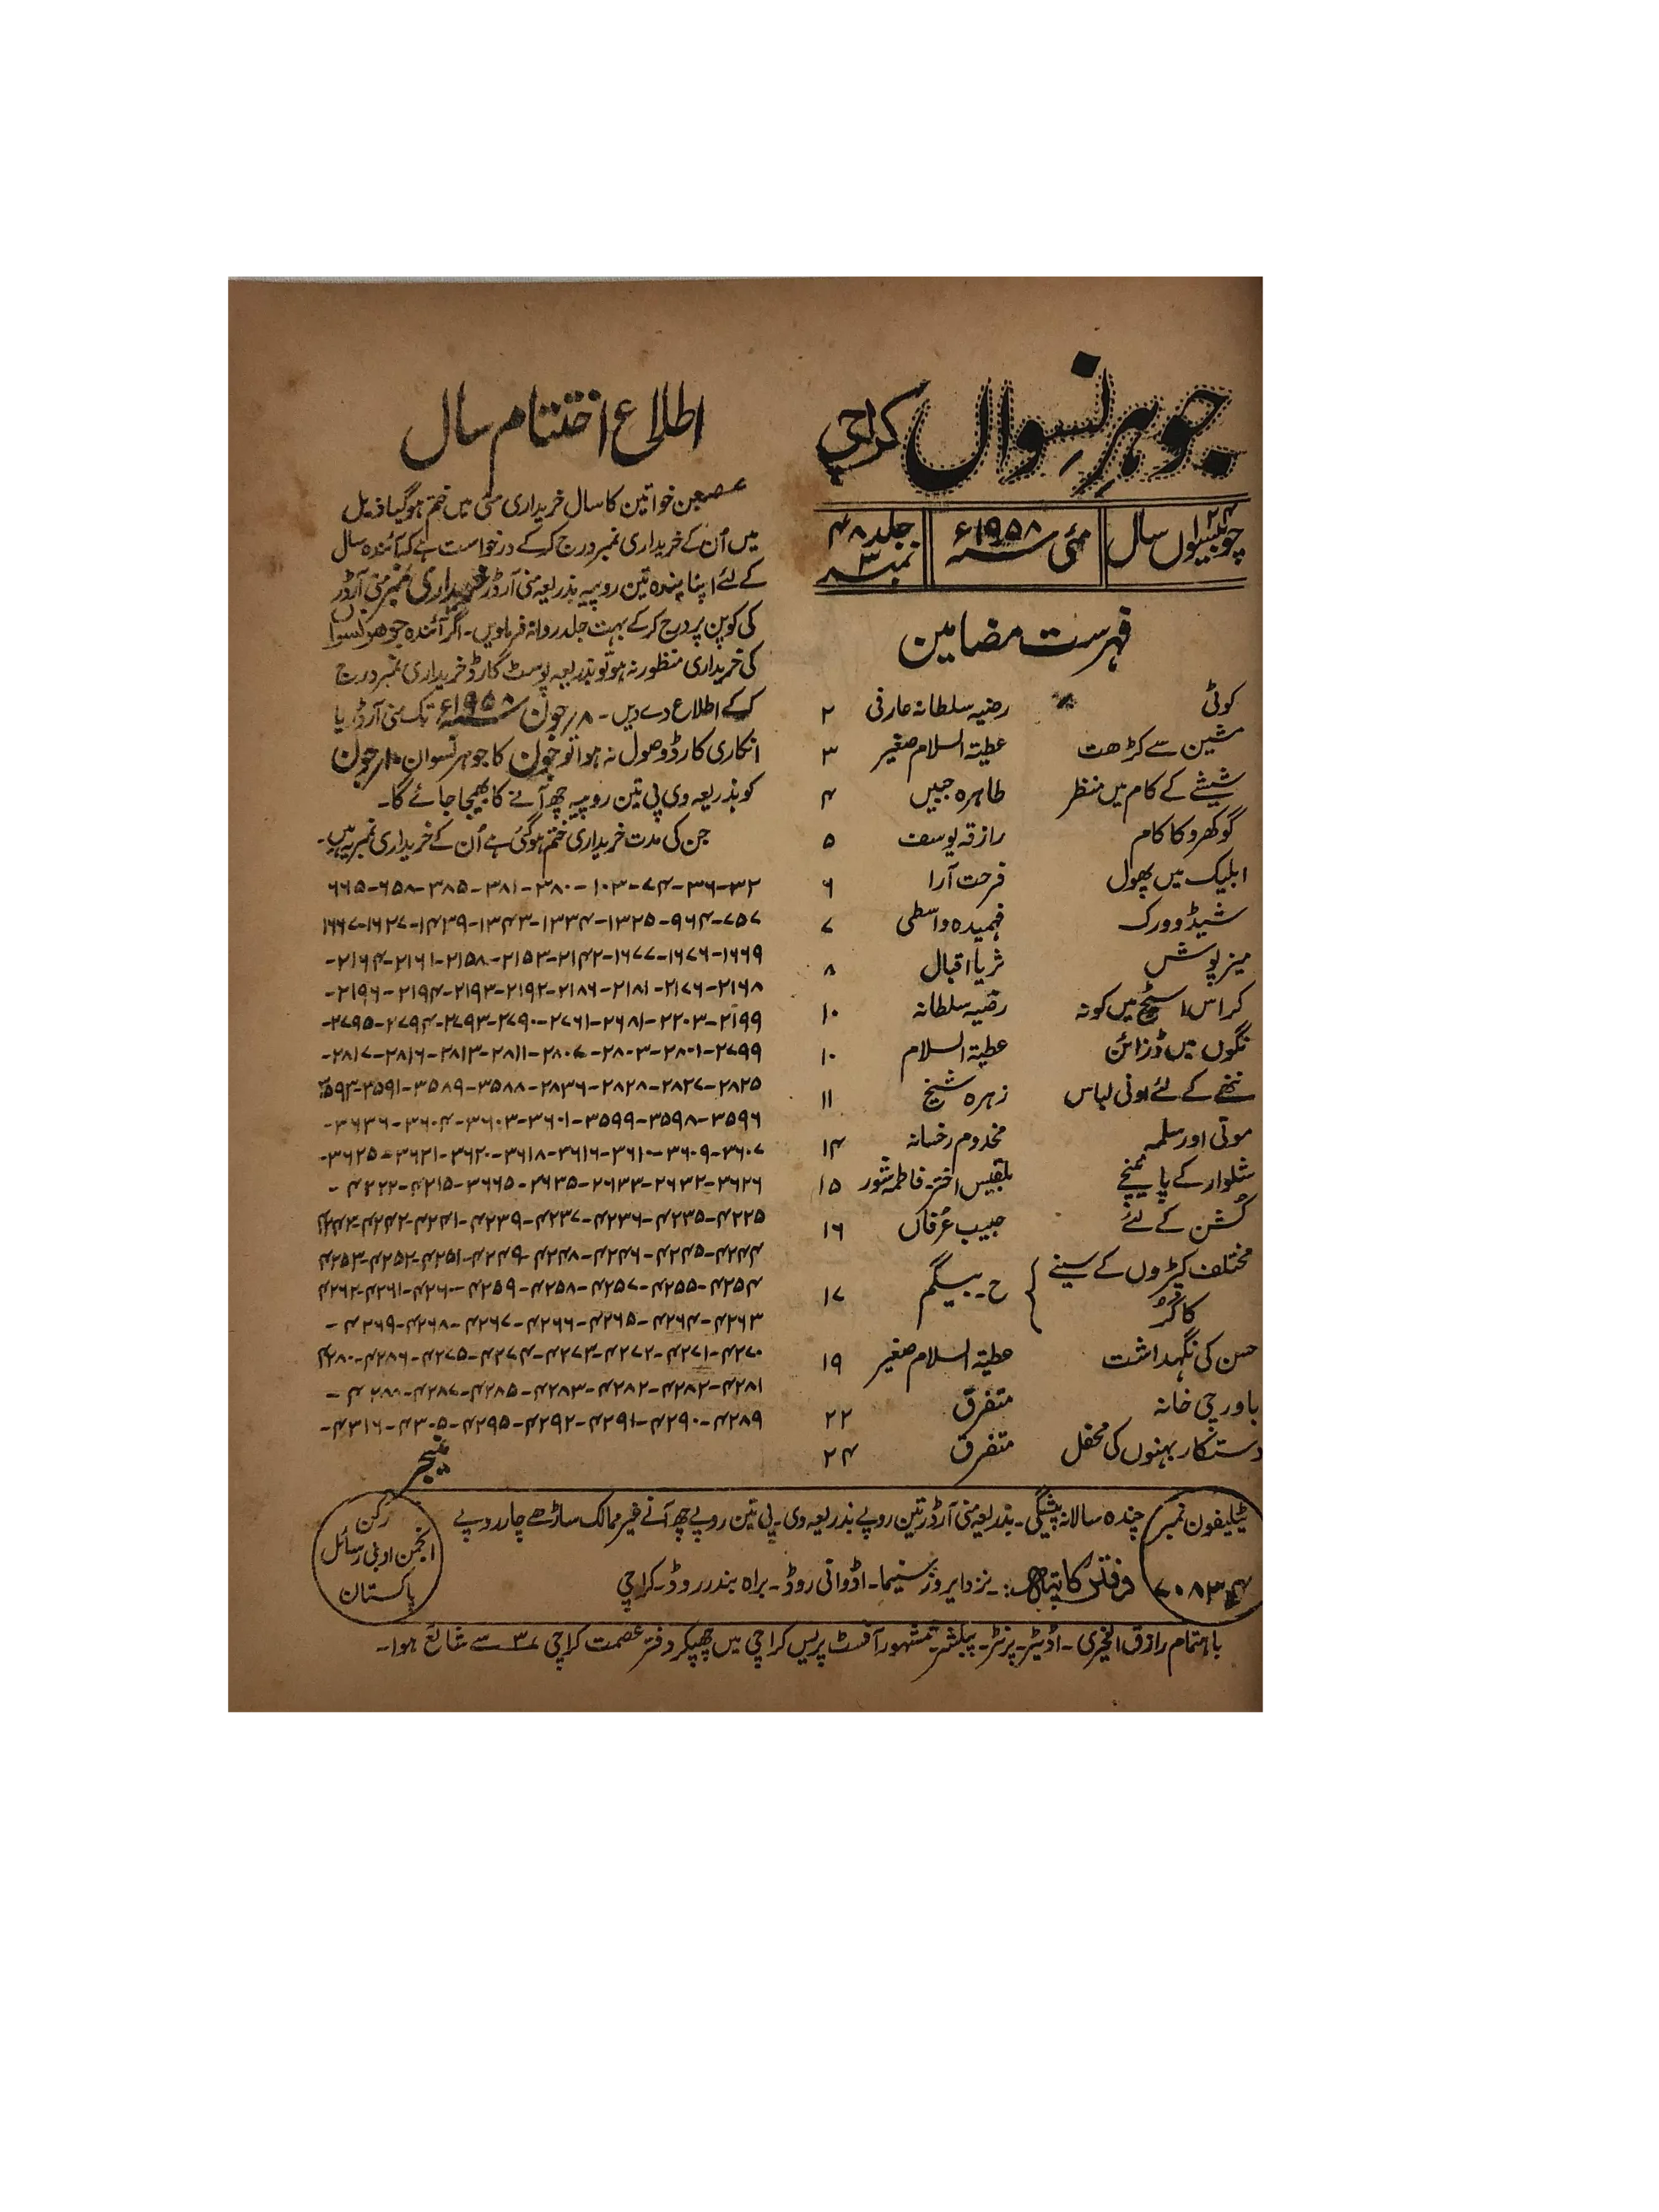 جوہرِ نسواں کراچی
چوبیسواں سال ۲۴
مئی ۱۹۵۸ء
جلد ۴۸
نمبر ۳
فہرست مضامین
کوٹی رضیہ سلطانہ عارفی ۲
مشین سے کڑھت عطیۃ السلام صغیر ۳
شیشے کے کام میں منظر طاہرہ جبیں ۴
گوکھرو کا کام رازقہ یوسف ۵
اپلیک میں پھول فرحت آرا ۶
شیڈو ورک فہمیدہ واسطی ۷
میز پوش ثریا اقبال ۸
کراس اسٹیچ میں کونہ رضیہ سلطانہ ۱۰
نگوں میں ڈزائن عطیۃ السلام ۱۰
ننھے کے لئے اونی لباس زہرہ شیخ ۱۱
موتی اور سلمہ مخدوم رخسانہ ۱۴
شلوار کے پائینچے بلقیس اختر۔ فاطمہ شور ۱۵
کشن کے لئے حبیب عرفاں ۱۶
مختلف کپڑوں کے سینے
کا گُر ح۔ بیگم ۱۷
حسن کی نگہداشت عطیۃ السلام صغیر ۱۹
باورچی خانہ متفرق ۲۲
دستکار بہنوں کی محفل متفرق ۲۴
اطلاع اختتام سال
جن خواتین کا سال خریداری مئی میں ختم ہوگیا ذیل
میں اُن کے خریداری نمبر درج کرکے درخواست ہے کہ آئندہ سال
کے لئے اپنا چندہ تین روپیہ بذریعہ منی آرڈر خریداری نمبر منی آرڈر
کی کوپن پر درج کرکے بہت جلد روانہ فرماویں۔ اگر آئندہ جوہر نسواں
کی خریداری منظور نہ ہو تو بذریعہ پوسٹ کارڈ خریداری نمبر درج
کرکے اطلاع دے دیں۔ ۸ر جون ۱۹۵۸ء تک منی آرڈر یا
انکاری کارڈ وصول نہ ہوا تو جون کا جوہر نسواں ۱۰ر جون
کو بذریعہ وی پی تین روپیہ چھ آنے کا بھیجا جائے گا۔
جن کی مدت خریداری ختم ہوگئی ہے اُن کے خریداری نمبر یہ ہیں۔
۳۲-۳۶-۷۴-۱۰۳-۳۸۰-۳۸۱-۳۸۵-۶۵۸-۶۶۵
۷۵۷-۹۶۴-۱۳۲۵-۱۳۳۴-۱۳۴۳-۱۴۳۹-۱۶۲۷-۱۶۶۷
۱۶۶۹-۱۶۷۶-۱۶۷۷-۲۱۴۲-۲۱۵۳-۲۱۵۸-۲۱۶۱-۲۱۶۴-
۲۱۶۸-۲۱۷۶-۲۱۸۱-۲۱۸۶-۲۱۹۲-۲۱۹۳-۲۱۹۴-۲۱۹۶-
۲۱۹۹-۲۲۰۳-۲۶۸۱-۲۷۶۱-۲۷۹۰-۲۷۹۳-۲۷۹۴-۲۷۹۵-
۲۷۹۹-۲۸۰۱-۲۸۰۳-۲۸۰۷-۲۸۱۱-۲۸۱۳-۲۸۱۶-۲۸۱۷-
۲۸۲۵-۲۸۲۷-۲۸۲۸-۲۸۳۶-۳۵۸۸-۳۵۸۹-۳۵۹۱-۳۵۹۳
۳۵۹۶-۳۵۹۸-۳۵۹۹-۳۶۰۱-۳۶۰۳-۳۶۰۴-۳۶۳۶-
۳۶۰۷-۳۶۰۹-۳۶۱۰-۳۶۱۶-۳۶۱۸-۳۶۲۰-۳۶۲۱-۳۶۲۵-
۳۶۲۶-۲۶۳۲-۲۶۳۳-۲۶۳۵-۳۶۶۵-۴۲۱۵-۴۲۲۲-
۴۲۲۵-۴۲۳۵-۴۲۳۶-۴۲۳۷-۴۲۳۹-۴۲۴۱-۴۲۴۲
۴۲۴۴-۴۲۴۵-۴۲۴۶-۴۲۴۸-۴۲۴۹-۴۲۵۱-۴۲۵۲-۴۲۵۳
۴۲۵۴-۴۲۵۵-۴۲۵۷-۴۲۵۸-۴۲۵۹-۴۲۶۰-۴۲۶۱-۴۲۶۲
۴۲۶۳-۴۲۶۴-۴۲۶۵-۴۲۶۶-۴۲۶۷-۴۲۶۸-۴۲۶۹-
۴۲۷۰-۴۲۷۱-۴۲۷۲-۴۲۷۳-۴۲۷۴-۴۲۷۵-۴۲۷۶-۴۲۸۰
۴۲۸۱-۴۲۸۲-۴۲۸۲-۴۲۸۳-۴۲۸۵-۴۲۸۷-۴۲۸۸-
۴۲۸۹-۴۲۹۰-۴۲۹۱-۴۲۹۲-۴۲۹۵-۴۳۰۵-۴۳۱۶-
منیجر
ٹیلیفون نمبر
چندہ سالانہ پیشگی۔ بذریعہ منی آرڈر تین روپے بذریعہ وی۔ پی تین روپے چھ آنے غیر ممالک ساڑھے چار روپے
دفتر کا پتہ:۔ نزد ایروز سنیما۔ اڈوانی روڈ۔ براہ بندر روڈ۔ کراچی
رکن
انجمن ادبی رسائل
پاکستان
باہتمام رازق الخیری۔ اڈیٹر۔ پرنٹر۔ پبلشر۔ مشہور آفسٹ پریس کراچی میں چھپکر دفتر عصمت کراچی ۳ سے شائع ہوا۔